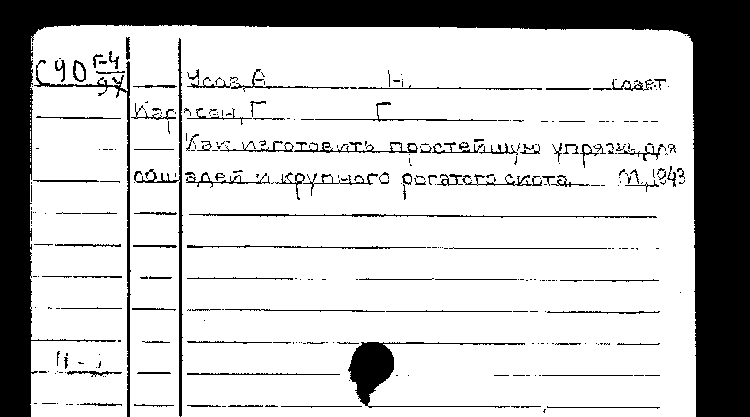 С90 Г-4
97
Усов, А Н. совет
Карлсен, Г Г
Как изготовить простейшую упряжь для
лошадей и крупного рогатого скота. М., 1943